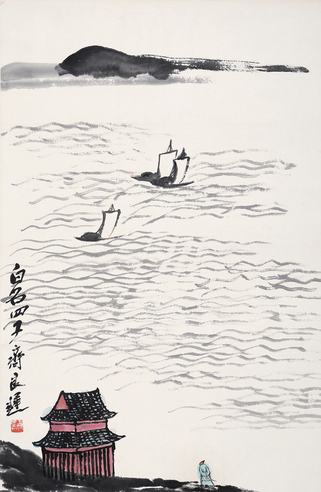 白石四子齊良遲